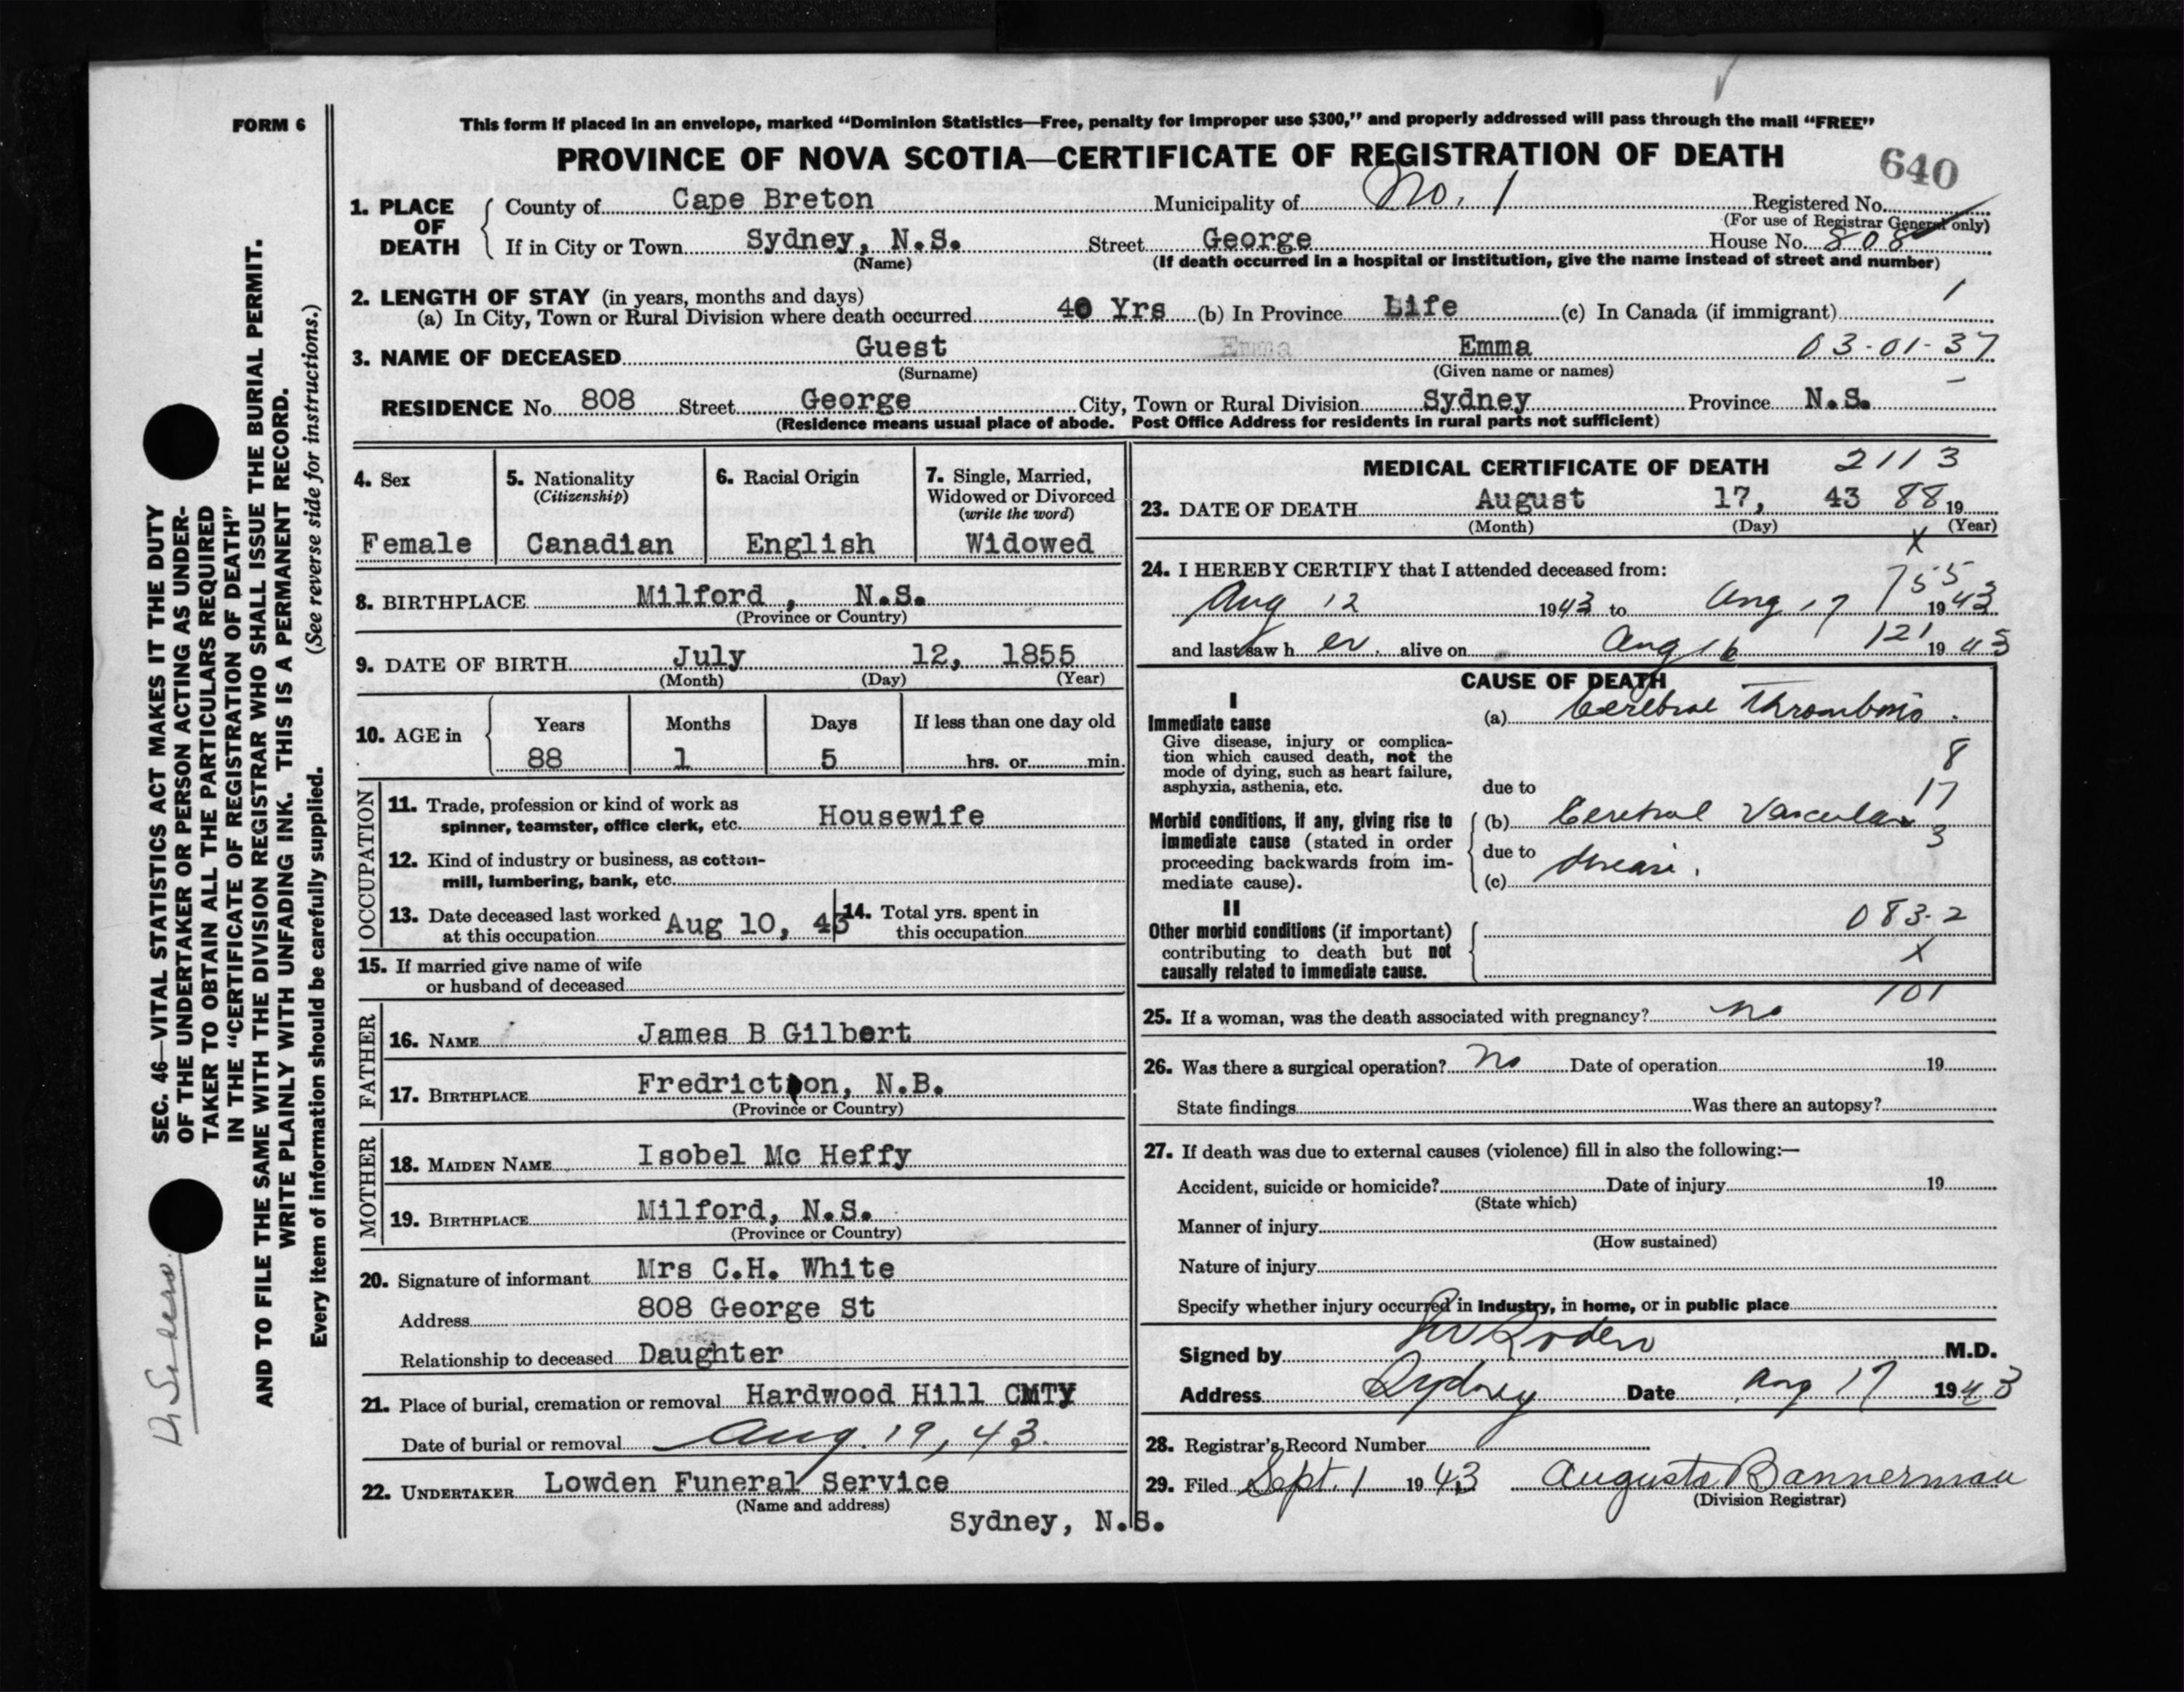 FORM 6
This form if placed in an envelope, marked “Dominion Statistics—Free, penalty for improper use $300,” and properly addressed will pass through the mail “FREE”
PROVINCE OF NOVA SCOTIA—CERTIFICATE OF REGISTRATION OF DEATH
640
1. PLACE OF DEATH
County of Cape Breton Municipality of No. 1 Registered No.
(For use of Registrar General only)
If in City or Town Sydney, N.S. Street George House No. 808
(Name) (If death occurred in a hospital or institution, give the name instead of street and number)
2. LENGTH OF STAY (in years, months and days)
(a) In City, Town or Rural Division where death occurred 40 Yrs (b) In Province Life (c) In Canada (if immigrant) 1
3. NAME OF DECEASED Guest Emma Emma 03-01-37
(Surname) (Given name or names)
RESIDENCE No. 808 Street George City, Town or Rural Division Sydney Province N.S.
(Residence means usual place of abode. Post Office Address for residents in rural parts not sufficient)
4. Sex
Female
5. Nationality
(Citizenship)
Canadian
6. Racial Origin
English
7. Single, Married,
Widowed or Divorced
(write the word)
Widowed
8. BIRTHPLACE Milford , N.S.
(Province or Country)
9. DATE OF BIRTH July 12, 1855
(Month) (Day) (Year)
10. AGE in
Years Months Days If less than one day old
88 1 5 hrs. or min.
OCCUPATION
11. Trade, profession or kind of work as
spinner, teamster, office clerk, etc. Housewife
12. Kind of industry or business, as cotton-
mill, lumbering, bank, etc.
13. Date deceased last worked
at this occupation Aug 10, 43
14. Total yrs. spent in
this occupation
15. If married give name of wife
or husband of deceased
FATHER
16. NAME James B Gilbert
17. BIRTHPLACE Fredricton, N.B.
(Province or Country)
MOTHER
18. MAIDEN NAME Isobel Mc Heffy
19. BIRTHPLACE Milford, N.S.
(Province or Country)
20. Signature of informant Mrs C.H. White
Address 808 George St
Relationship to deceased Daughter
21. Place of burial, cremation or removal Hardwood Hill CMTY
Date of burial or removal Aug. 19, 43.
22. UNDERTAKER Lowden Funeral Service
(Name and address)
Sydney, N.S.
MEDICAL CERTIFICATE OF DEATH 2113
23. DATE OF DEATH August 17, 43 88 19
(Month) (Day) (Year)
X
24. I HEREBY CERTIFY that I attended deceased from:
755
Aug 12 1943 to Aug 17 1943
and last saw h er. alive on Aug 16 121 1943
CAUSE OF DEATH
I
Immediate cause
Give disease, injury or complica-
tion which caused death, not the
mode of dying, such as heart failure,
asphyxia, asthenia, etc.
(a) Cerebral Thrombosis.
8
due to
17
Morbid conditions, if any, giving rise to
immediate cause (stated in order
proceeding backwards from im-
mediate cause).
(b) Cerebral Vascular
3
due to
(c) disease.
II
Other morbid conditions (if important)
contributing to death but not
causally related to immediate cause.
083-2
X
101
25. If a woman, was the death associated with pregnancy? no
26. Was there a surgical operation? No Date of operation 19
State findings Was there an autopsy?
27. If death was due to external causes (violence) fill in also the following:—
Accident, suicide or homicide? Date of injury 19
(State which)
Manner of injury
(How sustained)
Nature of injury
Specify whether injury occurred in industry, in home, or in public place
Signed by M.D.
Address Sydney Date Aug 17 1943
28. Registrar's Record Number
29. Filed Sept. 1 1943 Augusta Bannerman
(Division Registrar)
SEC. 46—VITAL STATISTICS ACT MAKES IT THE DUTY
OF THE UNDERTAKER OR PERSON ACTING AS UNDER-
TAKER TO OBTAIN ALL THE PARTICULARS REQUIRED
IN THE “CERTIFICATE OF REGISTRATION OF DEATH”
AND TO FILE THE SAME WITH THE DIVISION REGISTRAR WHO SHALL ISSUE THE BURIAL PERMIT.
WRITE PLAINLY WITH UNFADING INK. THIS IS A PERMANENT RECORD.
Every item of information should be carefully supplied. (See reverse side for instructions.)